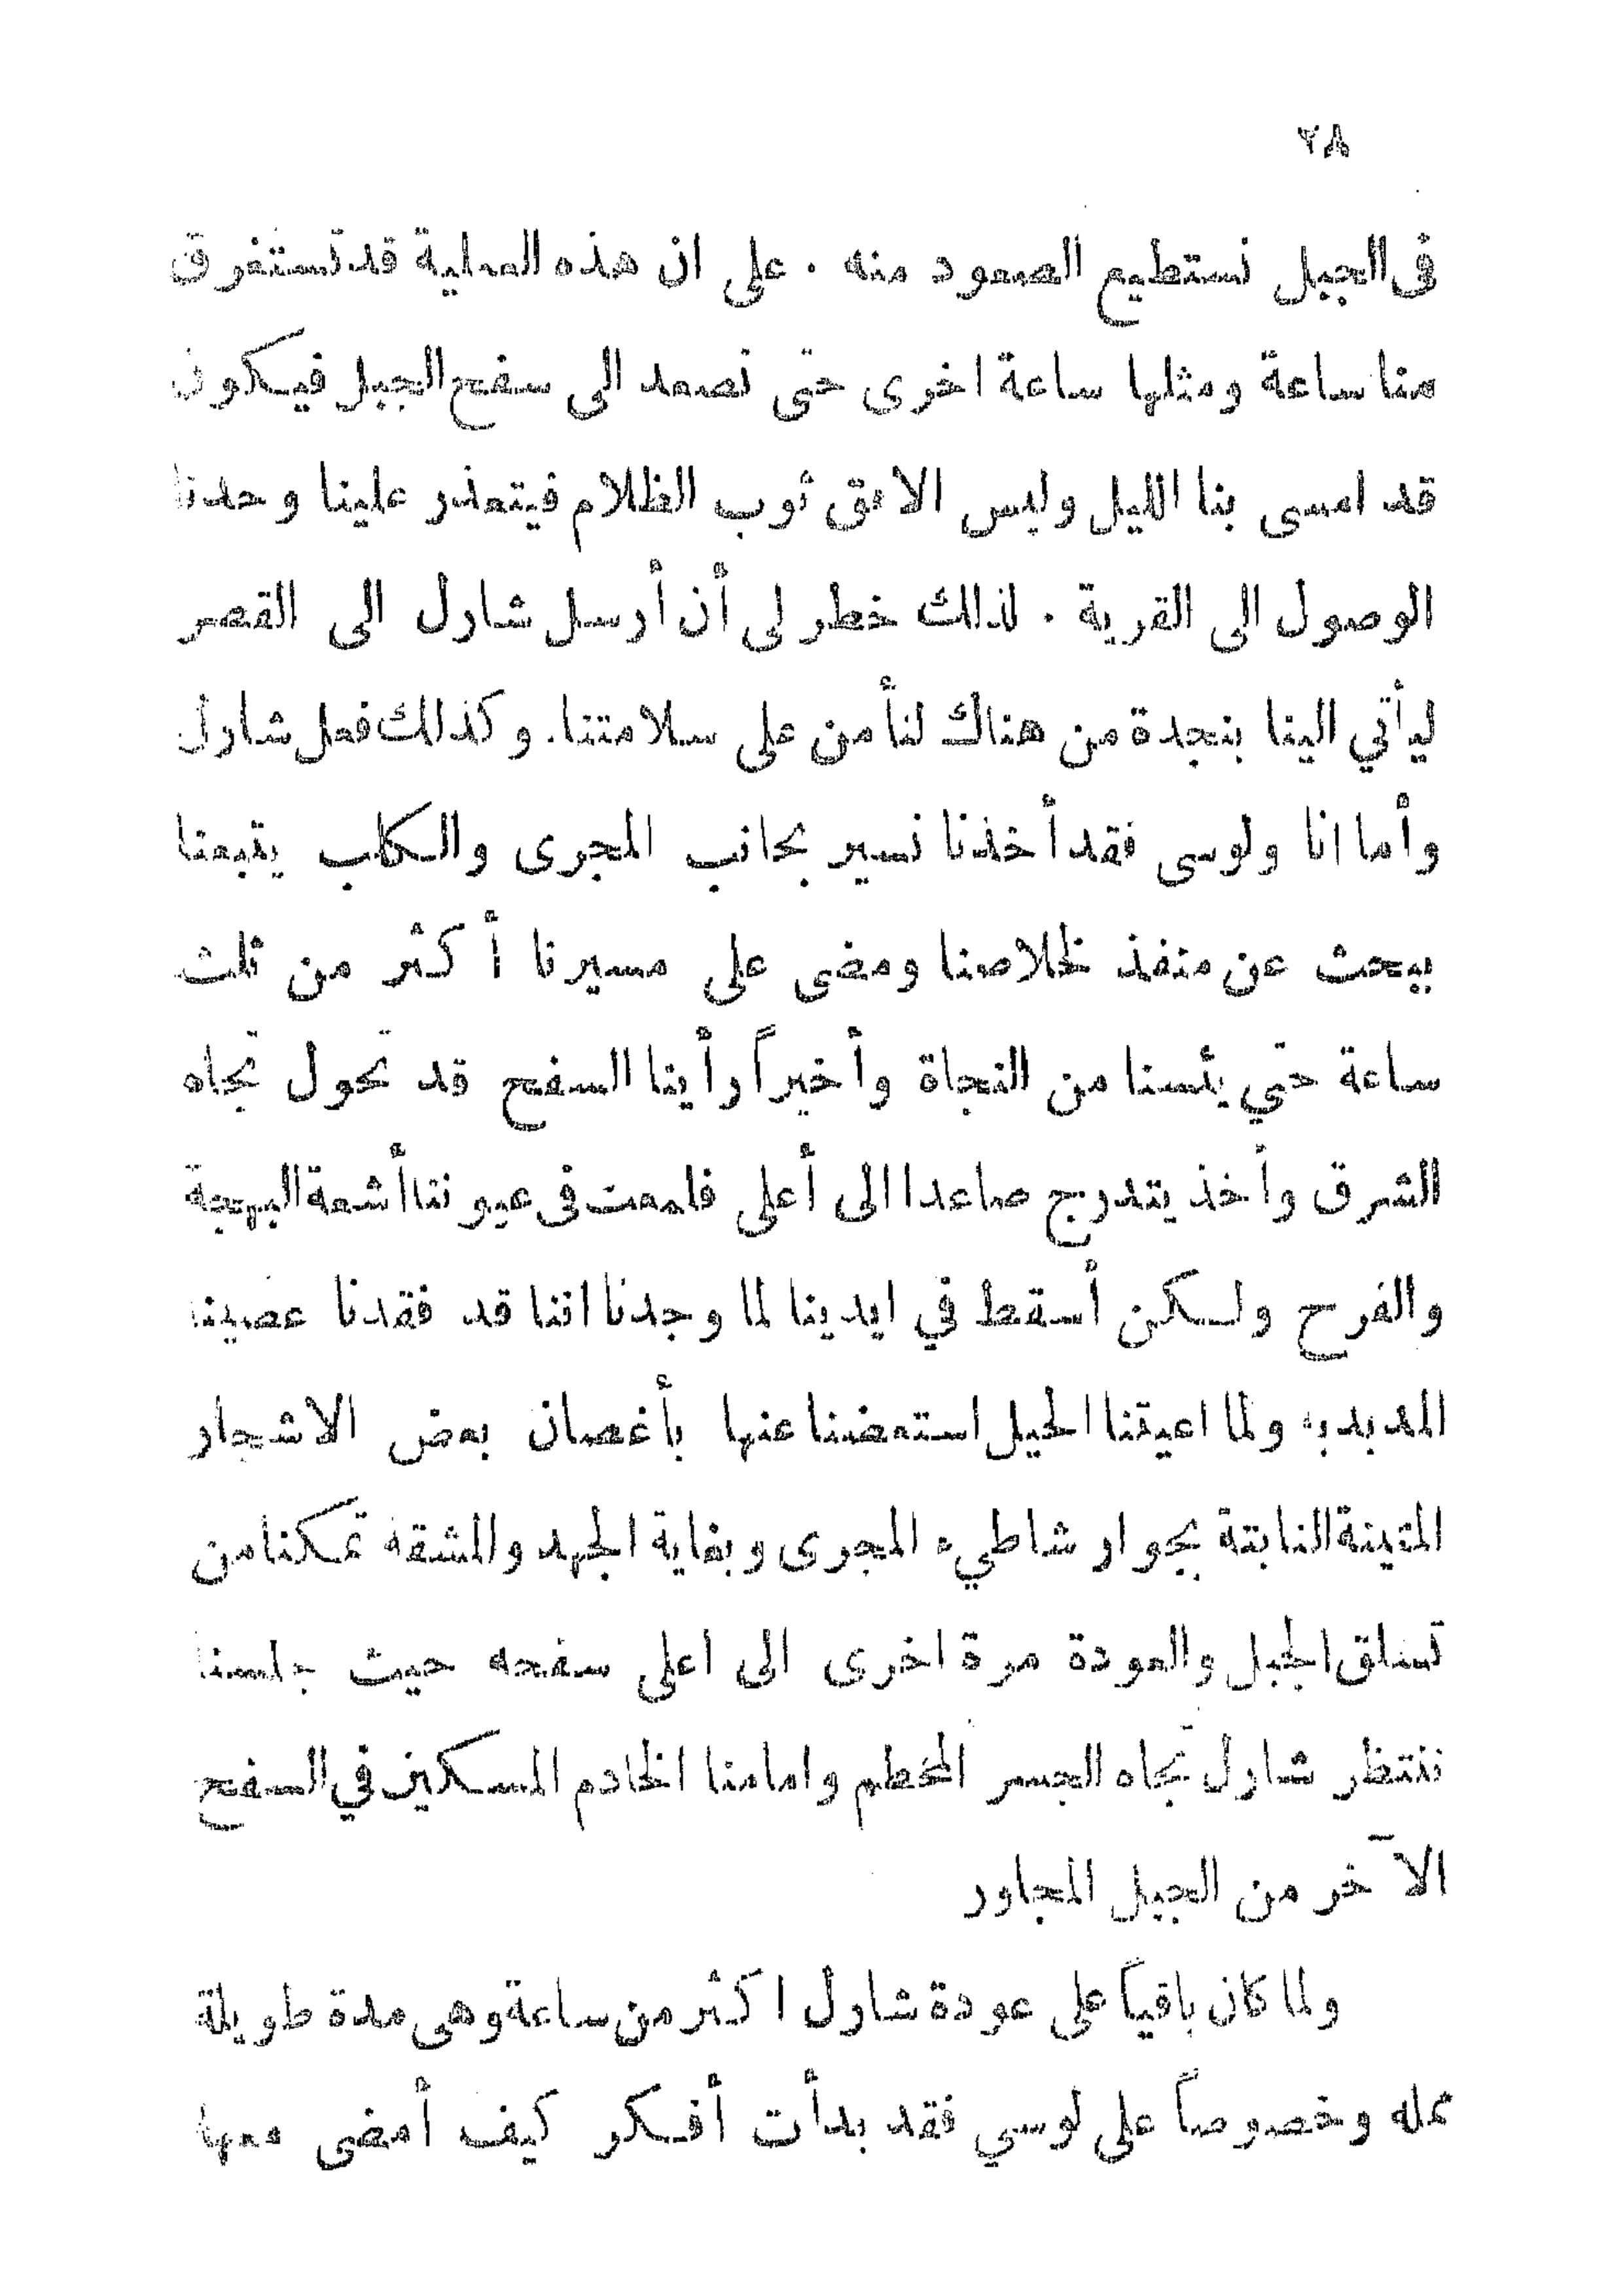 ٢٨
فى الجبل نستطيع الصعود منه . على ان هذه العملية قد تستغرق
منا ساعة ومثلها ساعة اخرى حتى نصعد الى سفح الجبل فيكون
قد امسى بنا الليل ولبس الافق ثوب الظلام فيتعذر علينا وحدنا
الوصول الى القرية . لذلك خطر لى أن أرسل شارل الى القصر
ليأتي الينا بنجدة من هناك لنأمن على سلامتنا . وكذلك فعل شارل
وأما انا ولوسى فقد أخذنا نسير بجانب المجرى والكلب يتبعنا
يبحث عن منفذ لخلاصنا ومضى على مسيرنا أكثر من ثلث
ساعة حتي يئسنا من النجاة وأخيراً رأينا السفح قد تحول تجاه
الشرق وأخذ يتدرج صاعدا الى أعلى فلمعت فى عيوننا أشعة البهجة
والفرح ولكن أسقط في ايدينا لما وجدنا اننا قد فقدنا عصينا
المدببه ولما اعيتنا الحيل استعضنا عنها بأغصان بعض الاشجار
المتينة النابتة بجوار شاطيء المجرى وبغاية الجهد والمشقة تمكنا من
تسلق الجبل والعودة مرة اخرى الى اعلى سفحه حيث جلسنا
ننتظر شارل تجاه الجسر المحطم وامامنا الخادم المسكين في السفح
الآخر من الجبل المجاور
ولما كان باقياً على عودة شارل اكثر من ساعة وهى مدة طويلة
مملة وخصوصاً على لوسي فقد بدأت أفكر كيف أمضى معها